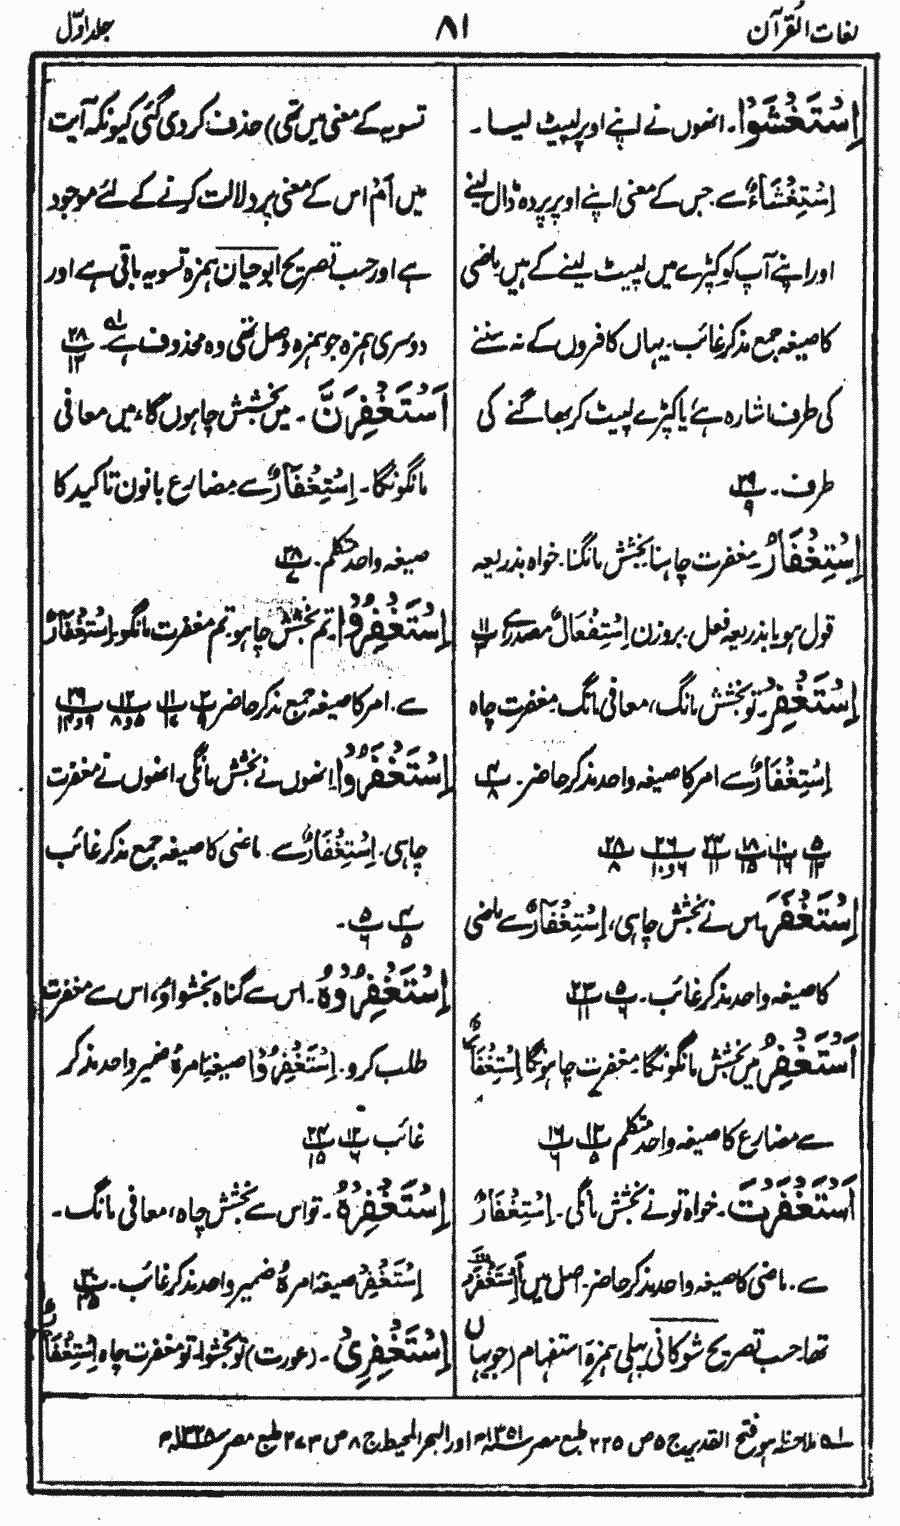 لغات القرآن
۸۱
جلد اوّل
اِسْتَغْشَوْا۔ انھوں نے اپنے اوپر لپیٹ لیا۔
اِسْتِغْشَاءٌ سے۔ جس کے معنی اپنے اوپر پردہ ڈال لینے
اور اپنے آپ کو کپڑے میں لپیٹ لینے کے ہیں ماضی
کا صیغہ جمع مذکر غائب۔ یہاں کافروں کے نہ سننے
کی طرف اشارہ ہے یا کپڑے لپیٹ کر بھاگنے کی
طرف۔ ۲۹/۹
اِسْتِغْفَارٌ۔ مغفرت چاہنا بخشش مانگنا۔ خواہ بذریعہ
قول ہو یا بذریعہ فعل۔ بروزن اِسْتِفْعَالٌ مصدر ہے
اِسْتَغْفِرْ۔ تو بخشش مانگ، معافی مانگ مغفرت چاہ
اِسْتِغْفَارٌ سے امر کا صیغہ واحد مذکر حاضر۔ ۴/۸
۵/۱۲ ۱۰/۱۶ ۱۸/۱۵ ۲۳/۱۱ ۲۶/۶و۱۰ ۲۸/۸
اِسْتَغْفَرَ۔ اس نے بخشش چاہی، اِسْتِغْفَارٌ سے ماضی
کا صیغہ واحد مذکر غائب۔ ۵/۶ ۲۳/۱۱
اَسْتَغْفِرُ میں بخشش مانگوں گا مغفرت چاہونگا اِسْتِغْفَارٌ
سے مضارع کا صیغہ واحد متکلم ۱۲/۵ ۱۶/۶
اَسْتَغْفَرْتَ۔ خواہ تو نے بخشش مانگی۔ اِسْتِغْفَارٌ
سے۔ ماضی کا صیغہ واحد مذکر حاضر۔ اصل میں أَاسْتَغْفَرْتَ
تھا۔ حسب تصریح شوکانی پہلی ہمزہ استفہام (جو یہاں
تسویہ کے معنی میں تھی) حذف کر دی گئی کیونکہ آیت
میں اَمْ اس کے معنی پر دلالت کرنے کے لئے موجود
ہے اور حسب تصریح ابو حیان ہمزہ تسویہ باقی ہے اور
دوسری ہمزہ جو ہمزہ وصل تھی وہ محذوف ہے۔ ۲۸/۱۳
اَسْتَغْفِرَنَّ۔ میں بخشش چاہوں گا، میں معافی
مانگونگا۔ اِسْتِغْفَارٌ سے مضارع بانون تاکید کا
صیغہ واحد متکلم۔ ۲۸/۷
اِسْتَغْفِرُوْا۔ تم بخشش چاہو۔ تم مغفرت مانگو۔ اِسْتِغْفَارٌ
سے۔ امر کا صیغہ جمع مذکر حاضر ۲/۹ ۱۱/۱۷ ۱۲/۵و۸ ۲۹/۹و۱۴
اِسْتَغْفَرُوْا۔ انھوں نے بخشش مانگی۔ انھوں نے مغفرت
چاہی۔ اِسْتِغْفَارٌ سے۔ ماضی کا صیغہ جمع مذکر غائب
۴/۵ ۵/۶۔
اِسْتَغْفِرُوْهُ۔ اس سے گناہ بخشواؤ، اس سے مغفرت
طلب کرو۔ اِسْتَغْفِرُوْا صیغۂ امر ہٗ ضمیر واحد مذکر
غائب ۱۲/۶ ۲۴/۱۵
اِسْتَغْفِرْهُ۔ تو اس سے بخشش چاہ، معافی مانگ۔
اِسْتَغْفِرْ صیغۂ امر ہٗ ضمیر واحد مذکر غائب۔ ۳۰/۳۵
اِسْتَغْفِرِیْ۔ (عورت) تو بخشوا۔ تو مغفرت چاہ اِسْتِغْفَارٌ
۱ ملاحظہ ہو فتح القدیر ج ۵ ص ۲۲۵ طبع مصر ۱۳۵۱ھ اور البحر المحیط ج ۸ ص ۲۷۳ طبع مصر ۱۳۲۸ھ